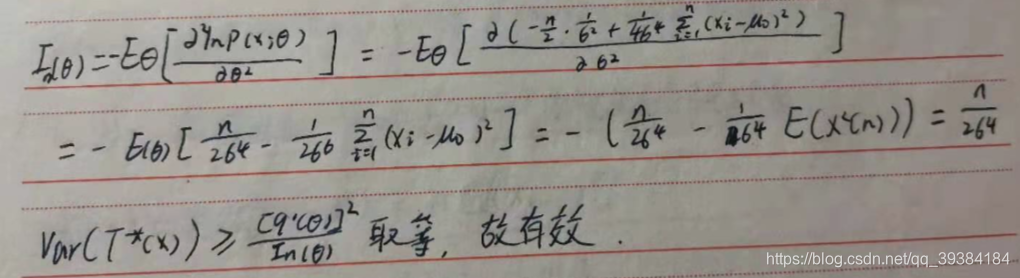 I_n(θ) = -E_θ[∂²lnp(x;θ)/∂θ²] = -E_θ[∂(-n/2·1/σ²+1/4σ⁴ Σ_{i=1}^{n}(xi-μ0)²)/∂σ²]
= -E(θ)[n/2σ⁴ - 1/2σ⁶ Σ_{i=1}^{n}(xi-μ0)²] = -(n/2σ⁴ - 1/σ⁴ E(X²(n))) = n/2σ⁴
Var(T*(x)) ≥ [g'(θ)]²/In(θ) 取等, 故有效.
https://blog.csdn.net/qq_39384184